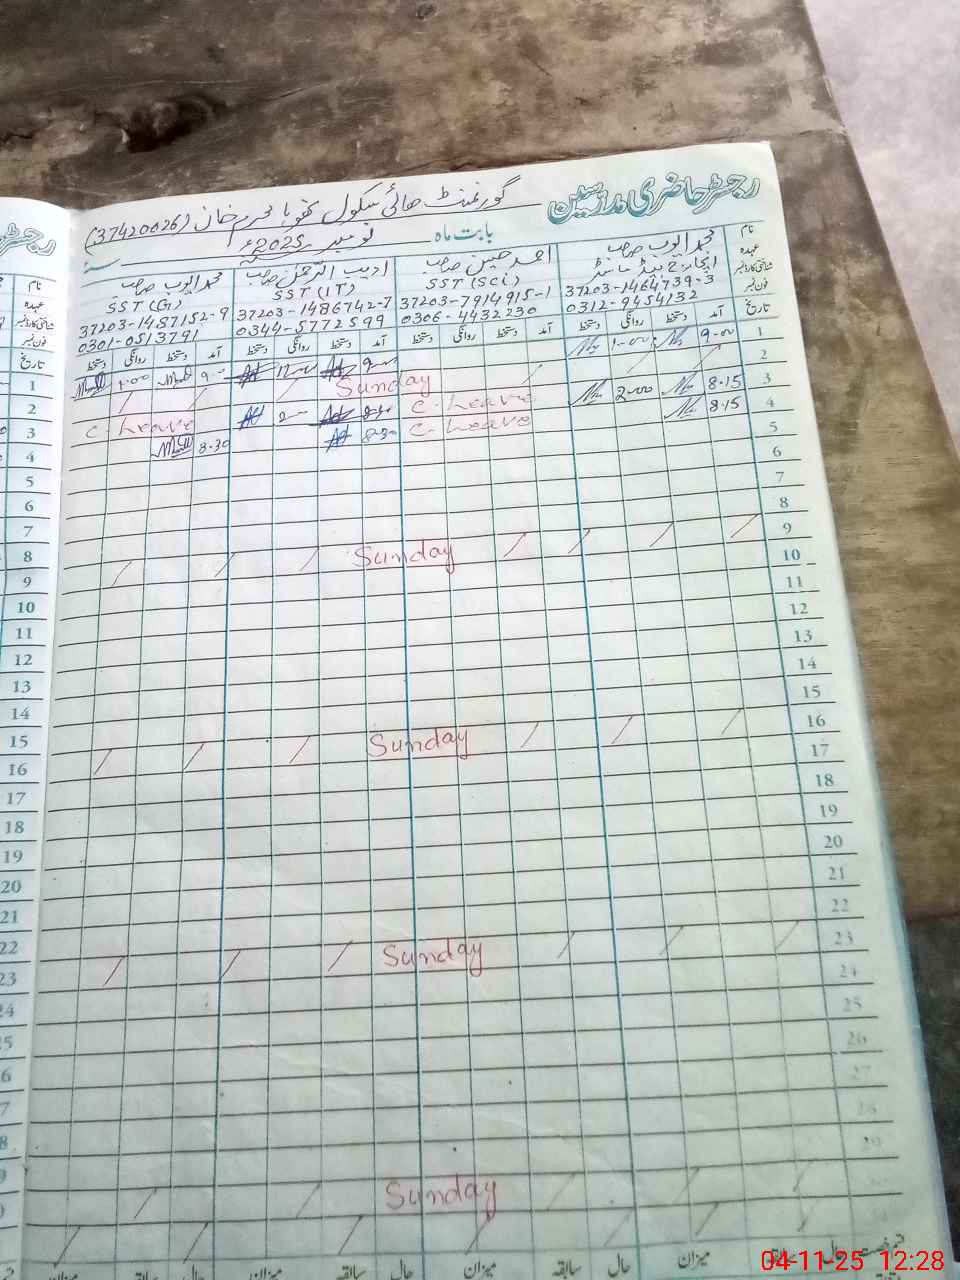 رجسٹر حاضری مدرسین
گورنمنٹ ھائی سکول محرم خان (37420026)
بابت ماہ نومبر 2025ء
نام
محمد ایوب صاحب
احمد حسین صاحب
ادیب الرحمٰن صاحب
محمد ایوب صاحب
عہدہ
انچارج ہیڈ ماسٹر
SST (SCi)
SST (IT)
SST (G)
شناختی کارڈ نمبر
37203-1464739-3
37203-7914915-1
37203-1486742-7
37203-1487152-9
فون نمبر
0312-9454132
0306-4432230
0344-5772599
0301-0513791
تاریخ آمد دستخط روانگی دستخط آمد دستخط روانگی دستخط آمد دستخط روانگی دستخط آمد دستخط روانگی دستخط
1 9-00 1-00 9-00 1-00
2 Sunday
3 8.15 2-00 C-Leave C-Leave
4 8.15 C-Leave 8-30 8-30
5
6
7
8
9 Sunday
10
11
12
13
14
15
16 Sunday
17
18
19
20
21
22
23 Sunday
24
25
26
27
28
29
Sunday
حال سابقہ میزان حال سابقہ میزان حال سابقہ میزان حال میزان
رجسٹر
نام
عہدہ
شناختی کارڈ نمبر
فون نمبر
تاریخ
1
2
3
4
5
6
7
8
9
10
11
12
13
14
15
16
17
18
19
20
21
22
23
24
04-11-25 12:28